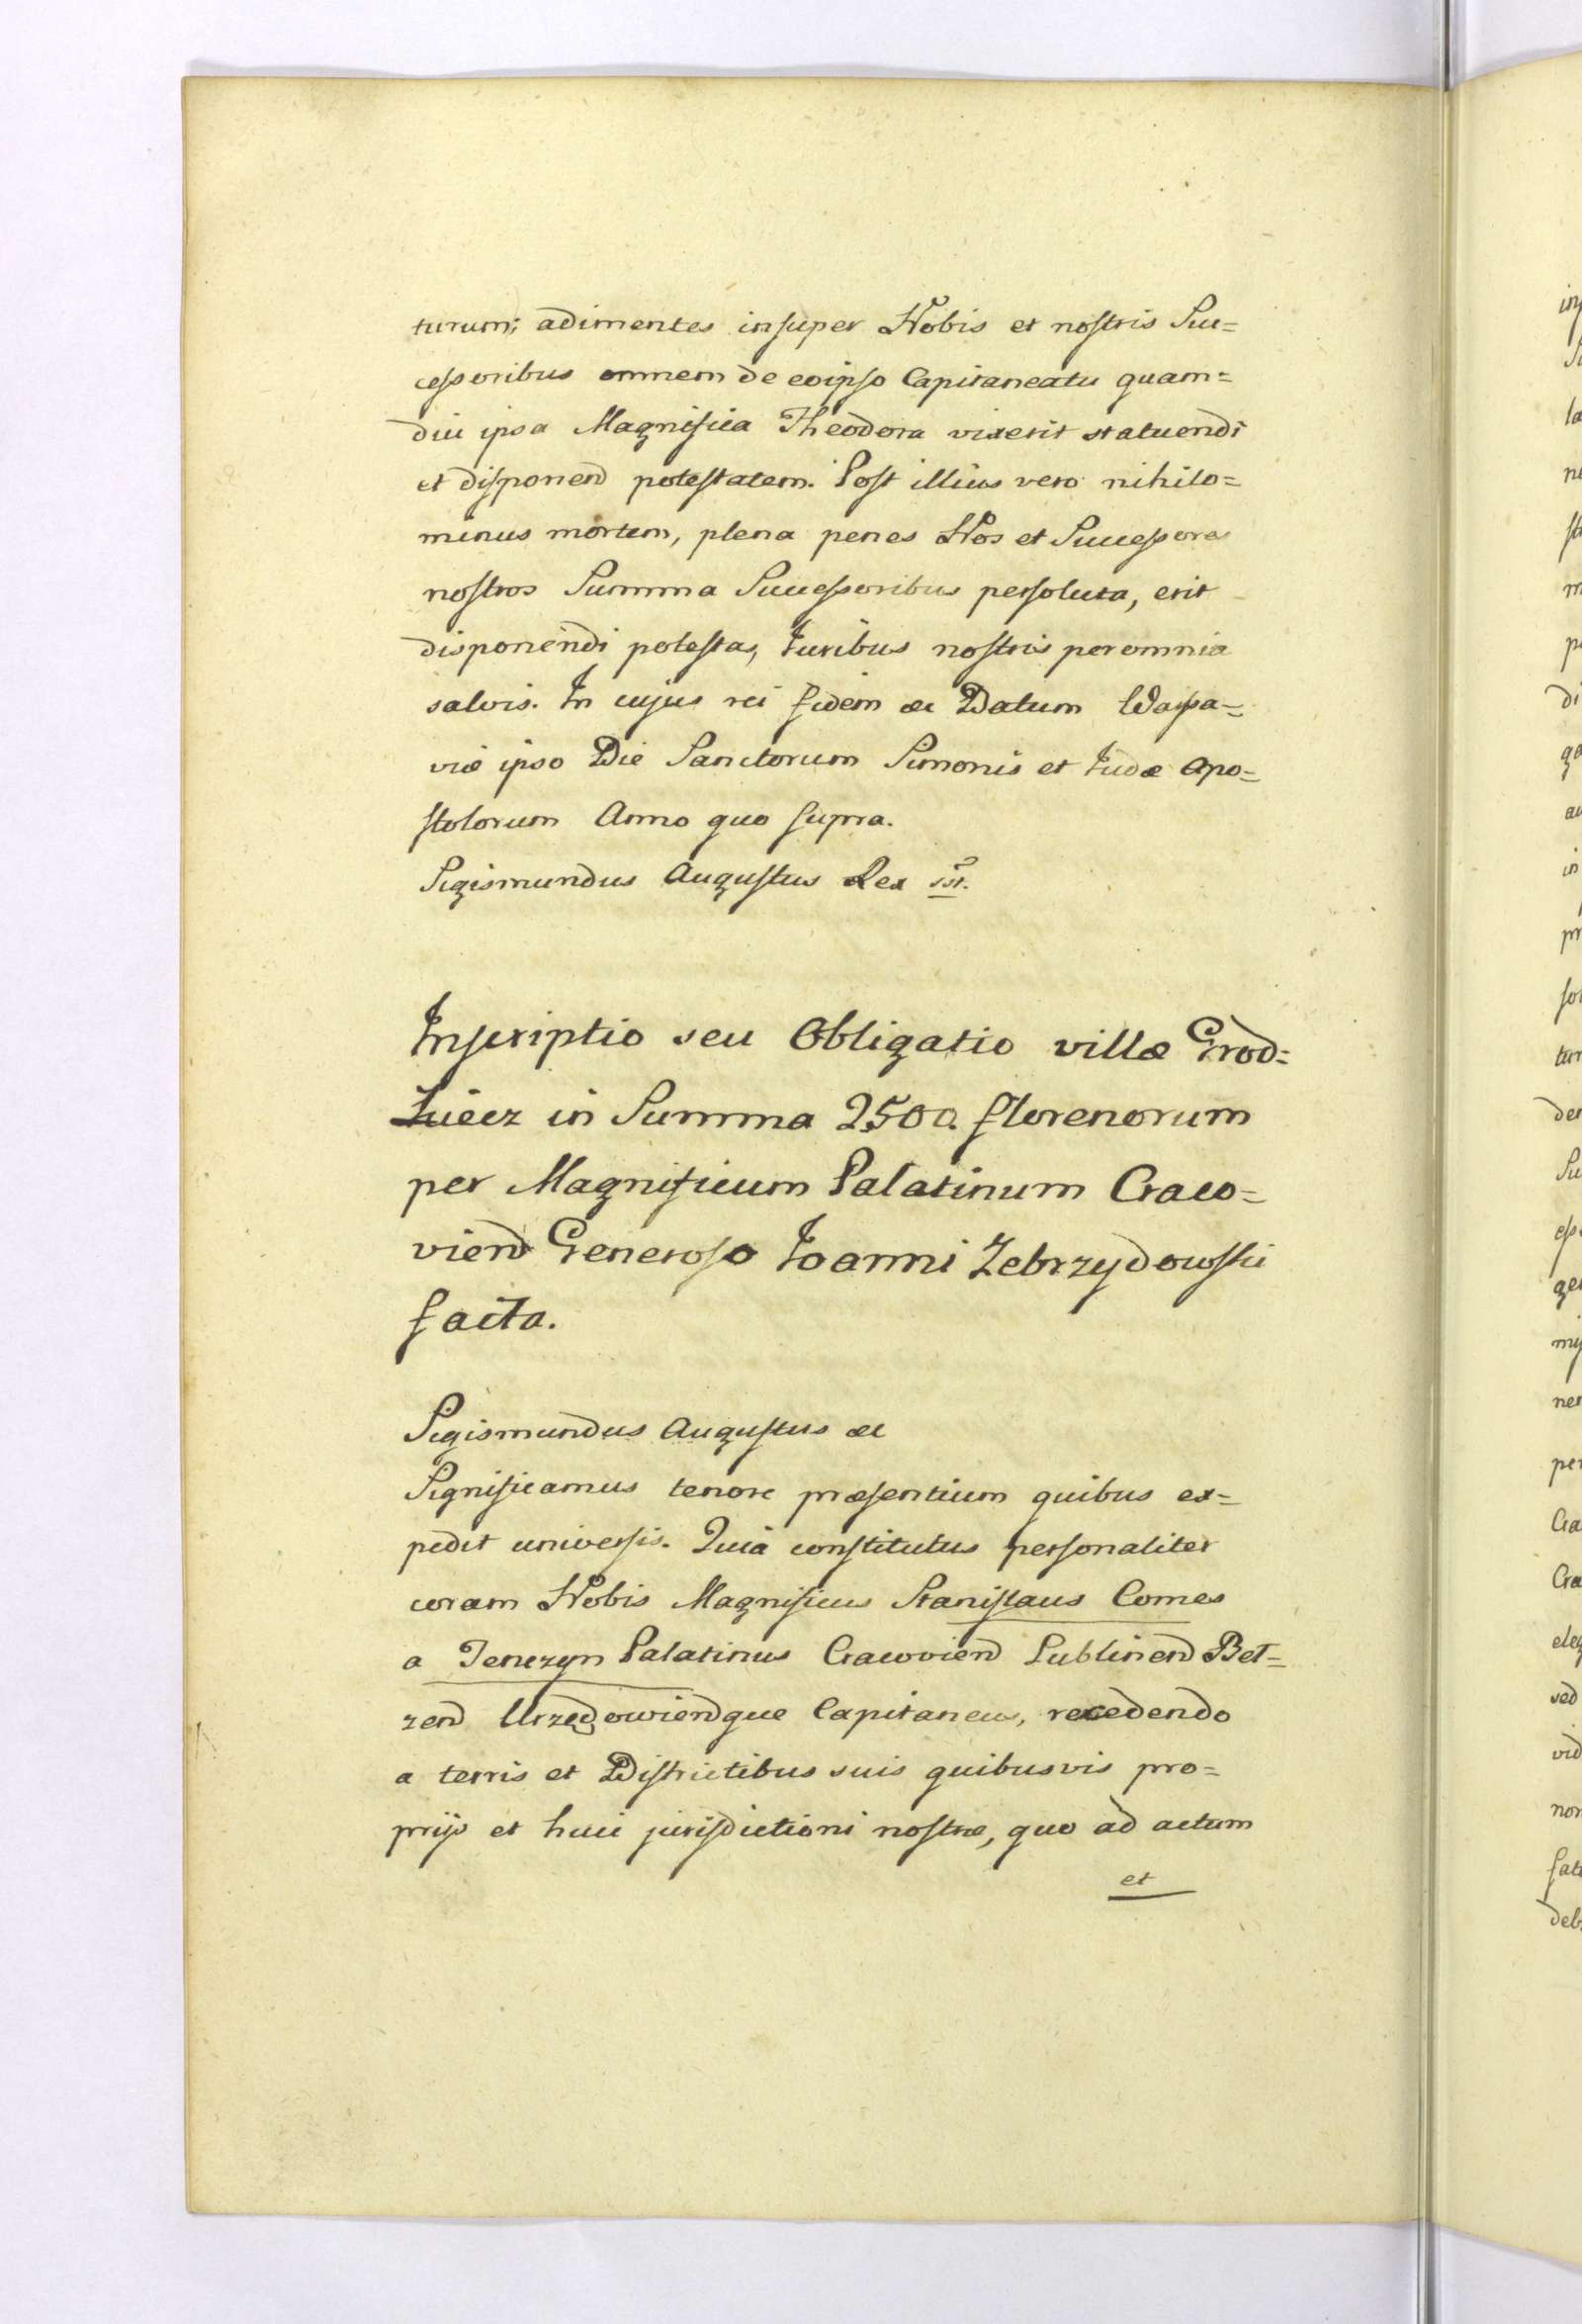 turum; adimentes insuper Nobis et nostris Suc=
cessoribus omnem de eoipso Capitaneatu quam=
diu ipsa Magnifica Theodora vixerit statuendi
et disponend potestatem. Post illius vero nihilo=
minus mortem, plena penes Nos et Successores
nostros Summa Successoribus persoluta, erit
disponendi potestas, Juribus nostris per omnia
salvis. In cujus rei fidem &c Datum Warsa=
viæ ipso Die Sanctorum Simonis et Judæ Apo=
stolorum Anno quo supra.
Sigismundus Augustus Rex sst.
Inscriptio seu Obligatio villæ Grod=
in Summa 2500. florenorum
per Magnificum Palatinum Craco=
viend Generoso Joanni Zebrzydowski
facta.
Sigismundus Augustus &c
Significamus tenore præsentium quibus ex=
pedit universis. Quia constitutus personaliter
coram Nobis Magnificus Stanislaus Comes
a Tenczyn Palatinus Cracoviend Lublinend Bel=
zend Urzędowiendque Capitaneus, recedendo
a terris et Districtibus suis quibusvis pro=
prijs et huic jurisdictioni nostræ, quo ad actum
et